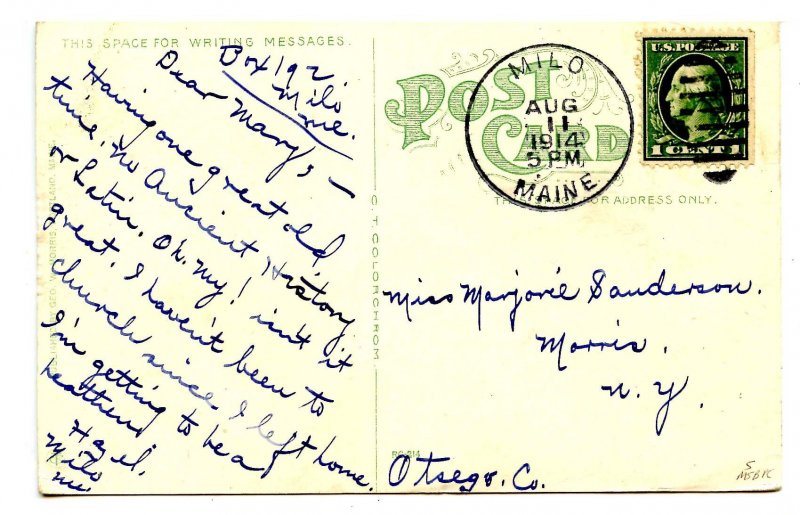 THIS SPACE FOR WRITING MESSAGES.
Box 192
Milo
Me.
Dear Marj:—
Having one great old
time. No Ancient History
or Latin. Oh. my! isn't it
great. I haven't been to
church since I left home.
I'm getting to be a
heathen!
Hazel.
Milo
Me.
C. T. COLORCHROM
POST CARD
MILO
AUG
11
1914
5 PM
MAINE
U.S. POSTAGE
1 CENT 1
FOR ADDRESS ONLY.
Miss Marjorie Sanderson.
Morris.
N. Y.
Otsego. Co.
5
MSB PC